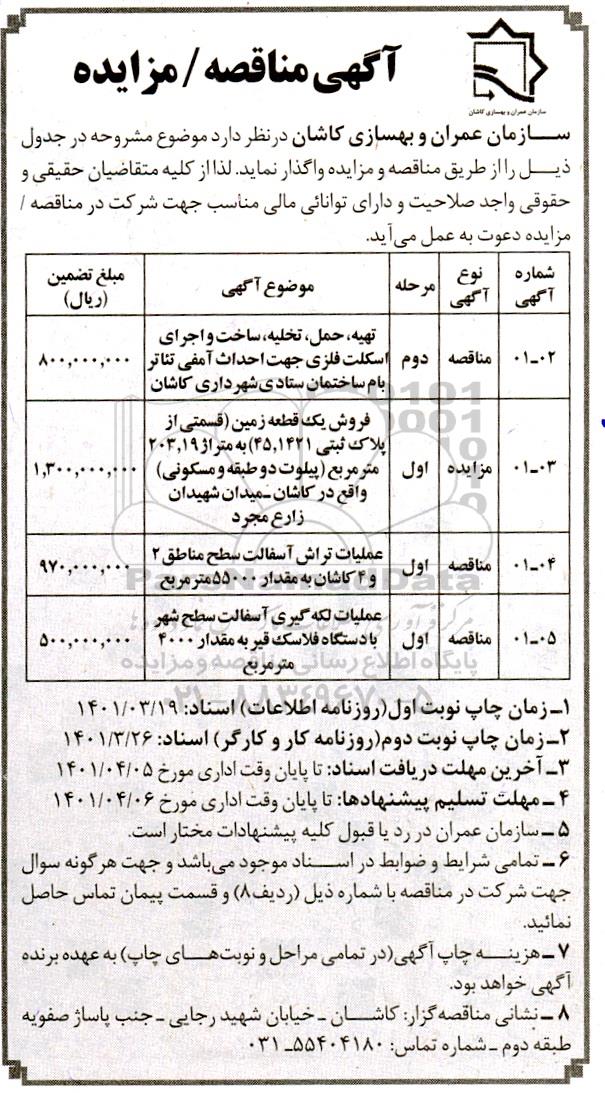 آگهی مناقصه / مزایده
سازمان عمران و بهسازی کاشان
سازمان عمران و بهسازی کاشان درنظر دارد موضوع مشروحه در جدول
ذیل را از طریق مناقصه و مزایده واگذار نماید. لذا از کلیه متقاضیان حقیقی و
حقوقی واجد صلاحیت و دارای توانائی مالی مناسب جهت شرکت در مناقصه /
مزایده دعوت به عمل می‌آید.
شماره آگهی | نوع آگهی | مرحله | موضوع آگهی | مبلغ تضمین (ریال)
۰۱-۰۲ | مناقصه | دوم | تهیه، حمل، تخلیه، ساخت و اجرای
اسکلت فلزی جهت احداث آمفی تئاتر
بام ساختمان ستادی شهرداری کاشان | ۸۰۰,۰۰۰,۰۰۰
۰۱-۰۳ | مزایده | اول | فروش یک قطعه زمین (قسمتی از
پلاک ثبتی ۴۵,۱۴۲۱) به متراژ ۲۰۳,۱۹
مترمربع (پیلوت دو طبقه و مسکونی)
واقع در کاشان ـ میدان شهیدان
زارع مجرد | ۱,۳۰۰,۰۰۰,۰۰۰
۰۱-۰۴ | مناقصه | اول | عملیات تراش آسفالت سطح مناطق ۲
و ۴ کاشان به مقدار ۵۵۰۰۰ مترمربع | ۹۷۰,۰۰۰,۰۰۰
۰۱-۰۵ | مناقصه | اول | عملیات لکه گیری آسفالت سطح شهر
با دستگاه فلاسک قیر به مقدار ۴۰۰۰
مترمربع | ۵۰۰,۰۰۰,۰۰۰
۱ـ زمان چاپ نوبت اول(روزنامه اطلاعات) اسناد: ۱۴۰۱/۰۳/۱۹
۲ـ زمان چاپ نوبت دوم(روزنامه کار و کارگر) اسناد: ۱۴۰۱/۳/۲۶
۳ـ آخرین مهلت دریافت اسناد: تا پایان وقت اداری مورخ ۱۴۰۱/۰۴/۰۵
۴ ـ مهلت تسلیم پیشنهادها: تا پایان وقت اداری مورخ ۱۴۰۱/۰۴/۰۶
۵ ـ سازمان عمران در رد یا قبول کلیه پیشنهادات مختار است.
۶ ـ تمامی شرایط و ضوابط در اسناد موجود می‌باشد و جهت هرگونه سوال
جهت شرکت در مناقصه با شماره ذیل (ردیف۸) و قسمت پیمان تماس حاصل
نمائید.
۷ ـ هزینه چاپ آگهی(در تمامی مراحل و نوبت‌های چاپ) به عهده برنده
آگهی خواهد بود.
۸ ـ نشانی مناقصه‌گزار: کاشان ـ خیابان شهید رجایی ـ جنب پاساژ صفویه
طبقه دوم ـ شماره تماس: ۵۵۴۰۴۱۸۰ـ ۰۳۱
ParsNamadData
پایگاه اطلاع رسانی مناقصه و مزایده
۰۲۱-۸۸۳۴۹۶۷۰-۵